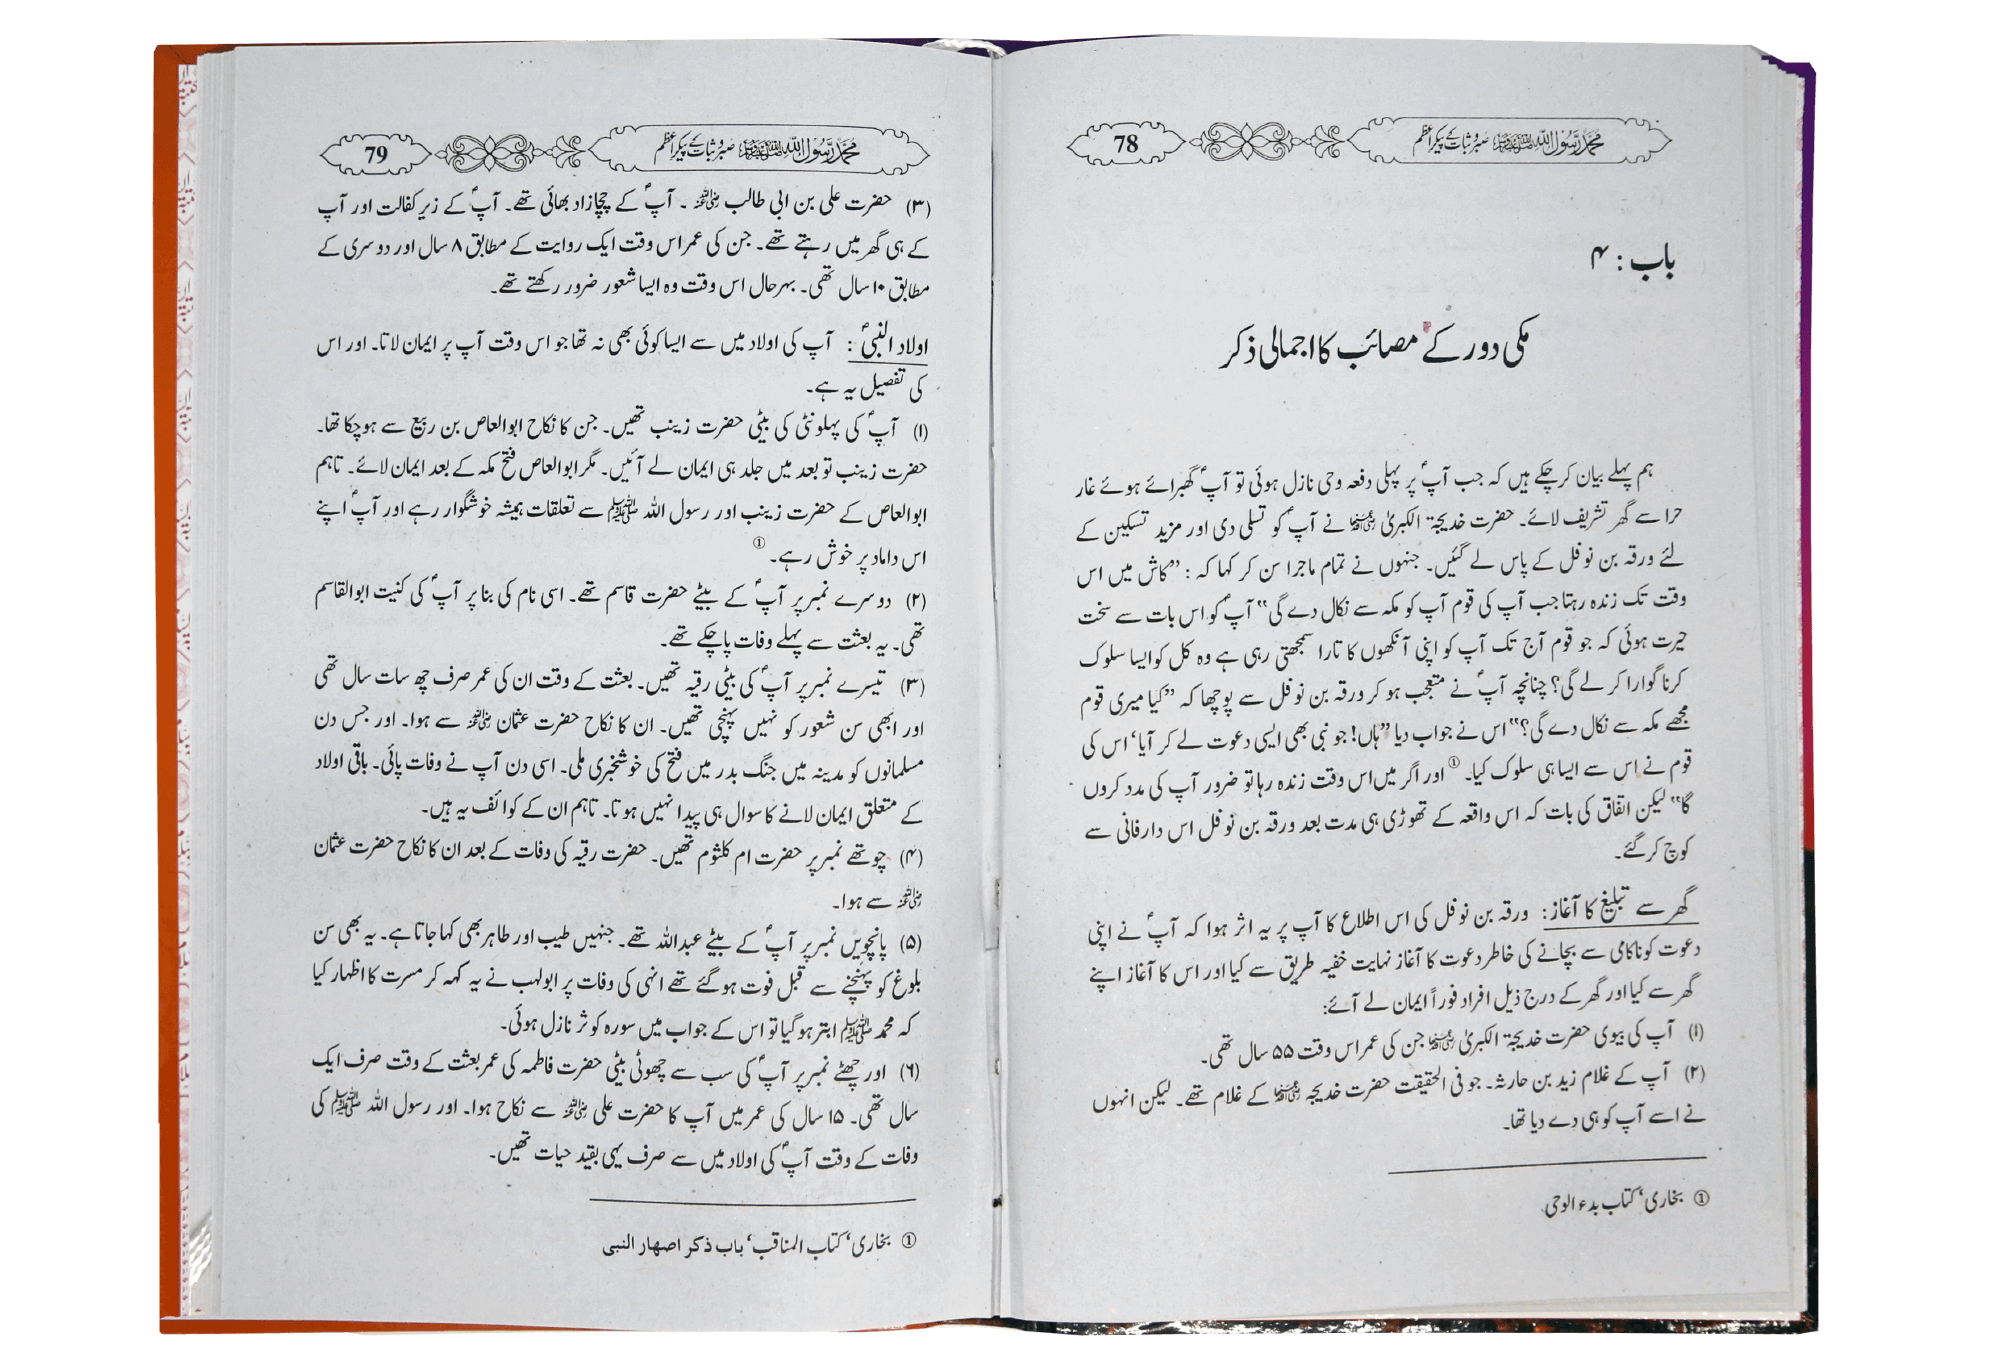 محمد رسول اللہ ﷺ صبر و ثبات کے پیکر اعظم
78
باب : ۴
مکی دور کے مصائب کا اجمالی ذکر
ہم پہلے بیان کر چکے ہیں کہ جب آپؐ پر پہلی دفعہ وحی نازل ہوئی تو آپؐ گھبرائے ہوئے غار
حرا سے گھر تشریف لائے۔ حضرت خدیجۃ الکبریٰ رضی اللہ عنہا نے آپؐ کو تسلی دی اور مزید تسکین کے
لئے ورقہ بن نوفل کے پاس لے گئیں۔ جنہوں نے تمام ماجرا سن کر کہا کہ : ”کاش میں اس
وقت تک زندہ رہتا جب آپ کی قوم آپ کو مکہ سے نکال دے گی“ آپؐ کو اس بات سے سخت
حیرت ہوئی کہ جو قوم آج تک آپ کو اپنی آنکھوں کا تارا سمجھتی رہی ہے وہ کل کو ایسا سلوک
کرنا گوارا کر لے گی؟ چنانچہ آپؐ نے متعجب ہو کر ورقہ بن نوفل سے پوچھا کہ ”کیا میری قوم
مجھے مکہ سے نکال دے گی؟“ اس نے جواب دیا ”ہاں! جو نبی بھی ایسی دعوت لے کر آیا‘ اس کی
قوم نے اس سے ایسا ہی سلوک کیا۔ ① اور اگر میں اس وقت زندہ رہا تو ضرور آپ کی مدد کروں
گا“ لیکن اتفاق کی بات کہ اس واقعہ کے تھوڑی ہی مدت بعد ورقہ بن نوفل اس دار فانی سے
کوچ کر گئے۔
گھر سے تبلیغ کا آغاز : ورقہ بن نوفل کی اس اطلاع کا آپ پر یہ اثر ہوا کہ آپؐ نے اپنی
دعوت کو ناکامی سے بچانے کی خاطر دعوت کا آغاز نہایت خفیہ طریق سے کیا اور اس کا آغاز اپنے
گھر سے کیا اور گھر کے درج ذیل افراد فوراً ایمان لے آئے:
(۱) آپ کی بیوی حضرت خدیجۃ الکبریٰ رضی اللہ عنہا جن کی عمر اس وقت ۵۵ سال تھی۔
(۲) آپ کے غلام زید بن حارثہ۔ جو فی الحقیقت حضرت خدیجہ رضی اللہ عنہا کے غلام تھے۔ لیکن انہوں
نے اسے آپ کو ہی دے دیا تھا۔
① بخاری‘ کتاب بدء الوحی
محمد رسول اللہ ﷺ صبر و ثبات کے پیکر اعظم
79
(۳) حضرت علی بن ابی طالب رضی اللہ عنہ ۔ آپؐ کے چچازاد بھائی تھے۔ آپؐ کے زیر کفالت اور آپ
کے ہی گھر میں رہتے تھے۔ جن کی عمر اس وقت ایک روایت کے مطابق ۸ سال اور دوسری کے
مطابق ۱۰ سال تھی۔ بہرحال اس وقت وہ ایسا شعور ضرور رکھتے تھے۔
اولاد النبیؐ : آپ کی اولاد میں سے ایسا کوئی بھی نہ تھا جو اس وقت آپ پر ایمان لاتا۔ اور اس
کی تفصیل یہ ہے۔
(۱) آپؐ کی پہلونٹی کی بیٹی حضرت زینب تھیں۔ جن کا نکاح ابوالعاص بن ربیع سے ہو چکا تھا۔
حضرت زینب تو بعد میں جلد ہی ایمان لے آئیں۔ مگر ابوالعاص فتح مکہ کے بعد ایمان لائے۔ تاہم
ابوالعاص کے حضرت زینب اور رسول اللہ ﷺ سے تعلقات ہمیشہ خوشگوار رہے اور آپؐ اپنے
اس داماد پر خوش رہے۔ ①
(۲) دوسرے نمبر پر آپؐ کے بیٹے حضرت قاسم تھے۔ اسی نام کی بنا پر آپؐ کی کنیت ابوالقاسم
تھی۔ یہ بعثت سے پہلے وفات پا چکے تھے۔
(۳) تیسرے نمبر پر آپؐ کی بیٹی رقیہ تھیں۔ بعثت کے وقت ان کی عمر صرف چھ سات سال تھی
اور ابھی سن شعور کو نہیں پہنچی تھیں۔ ان کا نکاح حضرت عثمان رضی اللہ عنہ سے ہوا۔ اور جس دن
مسلمانوں کو مدینہ میں جنگ بدر میں فتح کی خوشخبری ملی۔ اسی دن آپ نے وفات پائی۔ باقی اولاد
کے متعلق ایمان لانے کا سوال ہی پیدا نہیں ہوتا۔ تاہم ان کے کوائف یہ ہیں۔
(۴) چوتھے نمبر پر حضرت ام کلثوم تھیں۔ حضرت رقیہ کی وفات کے بعد ان کا نکاح حضرت عثمان
رضی اللہ عنہ سے ہوا۔
(۵) پانچویں نمبر پر آپؐ کے بیٹے عبداللہ تھے۔ جنہیں طیب اور طاہر بھی کہا جاتا ہے۔ یہ بھی سن
بلوغ کو پہنچنے سے قبل فوت ہو گئے تھے انہی کی وفات پر ابولہب نے یہ کہہ کر مسرت کا اظہار کیا
کہ محمد ﷺ ابتر ہو گیا تو اس کے جواب میں سورہ کوثر نازل ہوئی۔
(۶) اور چھٹے نمبر پر آپؐ کی سب سے چھوٹی بیٹی حضرت فاطمہ کی عمر بعثت کے وقت صرف ایک
سال تھی۔ ۱۵ سال کی عمر میں آپ کا حضرت علی رضی اللہ عنہ سے نکاح ہوا۔ اور رسول اللہ ﷺ کی
وفات کے وقت آپؐ کی اولاد میں سے صرف یہی بقید حیات تھیں۔
① بخاری‘ کتاب المناقب‘ باب ذکر اصهار النبی